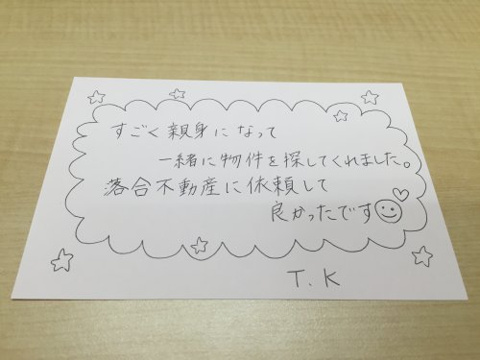 すごく親身になって
一緒に物件を探してくれました。
落合不動産に依頼して
良かったです
T.K